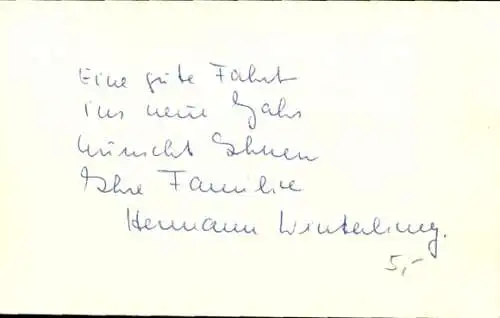 Eine gute Fahrt
ins neue Jahr
wünscht Ihnen
Ihre Familie
Hermann Winterling.
5,-